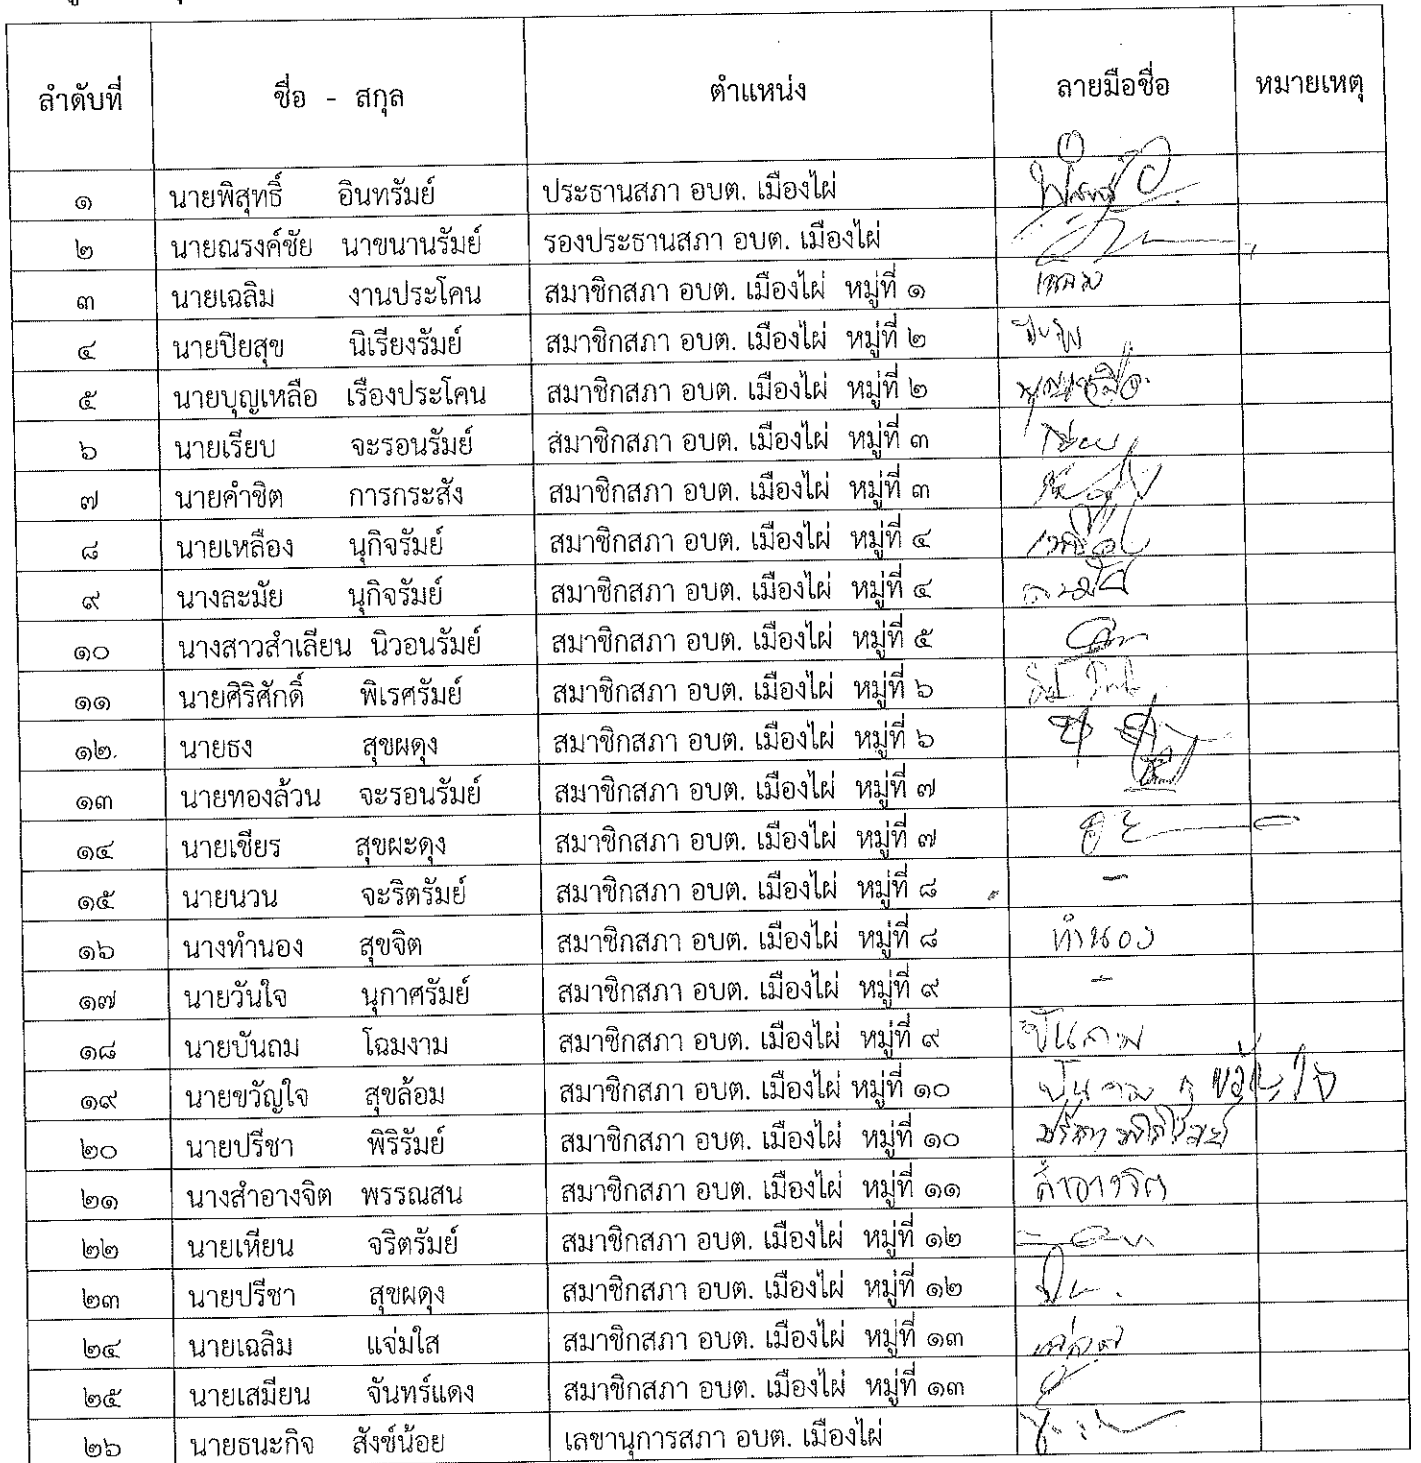 ลำดับที่ ชื่อ - สกุล ตำแหน่ง ลายมือชื่อ หมายเหตุ
๑ นายพิสุทธิ์ อินทรัมย์ ประธานสภา อบต. เมืองไผ่
๒ นายณรงค์ชัย นาขนานรัมย์ รองประธานสภา อบต. เมืองไผ่
๓ นายเฉลิม งานประโคน สมาชิกสภา อบต. เมืองไผ่ หมู่ที่ ๑ เฉลิม
๔ นายปิยสุข นิเรียงรัมย์ สมาชิกสภา อบต. เมืองไผ่ หมู่ที่ ๒
๕ นายบุญเหลือ เรืองประโคน สมาชิกสภา อบต. เมืองไผ่ หมู่ที่ ๒ บุญเหลือ
๖ นายเรียบ จะรอนรัมย์ สมาชิกสภา อบต. เมืองไผ่ หมู่ที่ ๓ เรียบ
๗ นายคำชิต การกระสัง สมาชิกสภา อบต. เมืองไผ่ หมู่ที่ ๓
๘ นายเหลือง นุกิจรัมย์ สมาชิกสภา อบต. เมืองไผ่ หมู่ที่ ๔ เหลือง
๙ นางละมัย นุกิจรัมย์ สมาชิกสภา อบต. เมืองไผ่ หมู่ที่ ๔ ละมัย
๑๐ นางสาวสำเลียน นิวอนรัมย์ สมาชิกสภา อบต. เมืองไผ่ หมู่ที่ ๕
๑๑ นายศิริศักดิ์ พิเรศรัมย์ สมาชิกสภา อบต. เมืองไผ่ หมู่ที่ ๖
๑๒. นายธง สุขผดุง สมาชิกสภา อบต. เมืองไผ่ หมู่ที่ ๖
๑๓ นายทองล้วน จะรอนรัมย์ สมาชิกสภา อบต. เมืองไผ่ หมู่ที่ ๗
๑๔ นายเชียร สุขผะดุง สมาชิกสภา อบต. เมืองไผ่ หมู่ที่ ๗
๑๕ นายนวน จะริตรัมย์ สมาชิกสภา อบต. เมืองไผ่ หมู่ที่ ๘ -
๑๖ นางทำนอง สุขจิต สมาชิกสภา อบต. เมืองไผ่ หมู่ที่ ๘ ทำนอง
๑๗ นายวันใจ นุกาศรัมย์ สมาชิกสภา อบต. เมืองไผ่ หมู่ที่ ๙ -
๑๘ นายบันถม โฉมงาม สมาชิกสภา อบต. เมืองไผ่ หมู่ที่ ๙ บันถม
๑๙ นายขวัญใจ สุขล้อม สมาชิกสภา อบต. เมืองไผ่ หมู่ที่ ๑๐ ขวัญใจ
๒๐ นายปรีชา พิริรัมย์ สมาชิกสภา อบต. เมืองไผ่ หมู่ที่ ๑๐ ปรีชา พิริรัมย์
๒๑ นางสำอางจิต พรรณสน สมาชิกสภา อบต. เมืองไผ่ หมู่ที่ ๑๑ สำอางจิต
๒๒ นายเหียน จริตรัมย์ สมาชิกสภา อบต. เมืองไผ่ หมู่ที่ ๑๒
๒๓ นายปรีชา สุขผดุง สมาชิกสภา อบต. เมืองไผ่ หมู่ที่ ๑๒
๒๔ นายเฉลิม แจ่มใส สมาชิกสภา อบต. เมืองไผ่ หมู่ที่ ๑๓
๒๕ นายเสมียน จันทร์แดง สมาชิกสภา อบต. เมืองไผ่ หมู่ที่ ๑๓
๒๖ นายธนะกิจ สังข์น้อย เลขานุการสภา อบต. เมืองไผ่